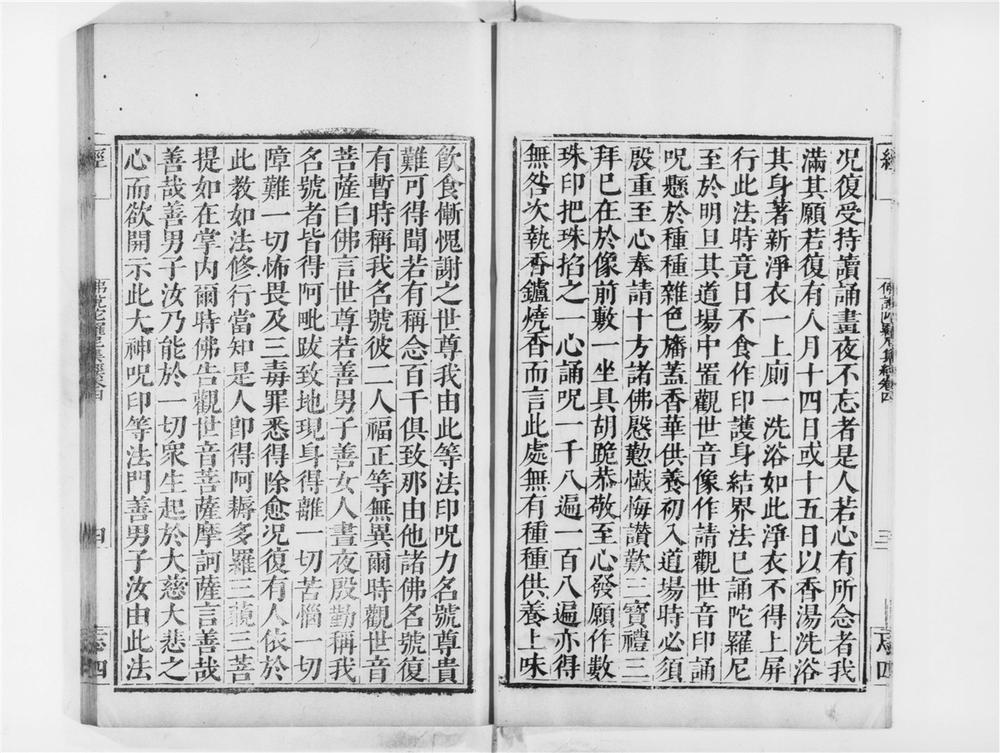 況復受持讀誦晝夜不忘者是人若心有所念者我
滿其願若復有人月十四日或十五日以香湯洗浴
其身著新淨衣一上廁一洗浴如此淨衣不得上屏
行此法時竟日不食作印護身結界法已誦陀羅尼
至於明旦其道場中置觀世音像作請觀世音印誦
呪懸於種種雜色旛蓋香華供養初入道場時必須
殷重至心奉請十方諸佛慇懃懺悔讚歎三寶禮三
拜已在於像前敷一坐具胡跪恭敬至心發願作數
珠印把珠掐之一心誦呪一千八遍一百八遍亦得
無咎次執香鑪燒香而言此處無有種種供養上味
飲食慚愧謝之世尊我由此等法印呪力名號尊貴
難可得聞若有稱念百千俱致那由他諸佛名號復
有暫時稱我名號彼二人福正等無異爾時觀世音
菩薩白佛言世尊若善男子善女人晝夜殷勤稱我
名號者皆得阿毗跋致地現身得離一切苦惱一切
障難一切怖畏及三毒罪悉得除愈況復有人依於
此教如法修行當知是人卽得阿耨多羅三藐三菩
提如在掌內爾時佛告觀世音菩薩摩訶薩言善哉
善哉善男子汝乃能於一切眾生起於大慈大悲之
心而欲開示此大神呪印等法門善男子汝由此法